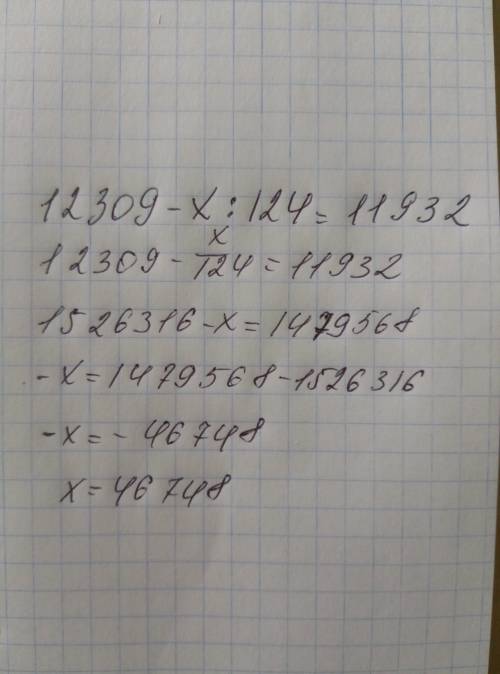 12309 - x : 124 = 11932
12309 - x/124 = 11932
1526316 - x = 1479568
- x = 1479568 - 1526316
- x = - 46748
x = 46748